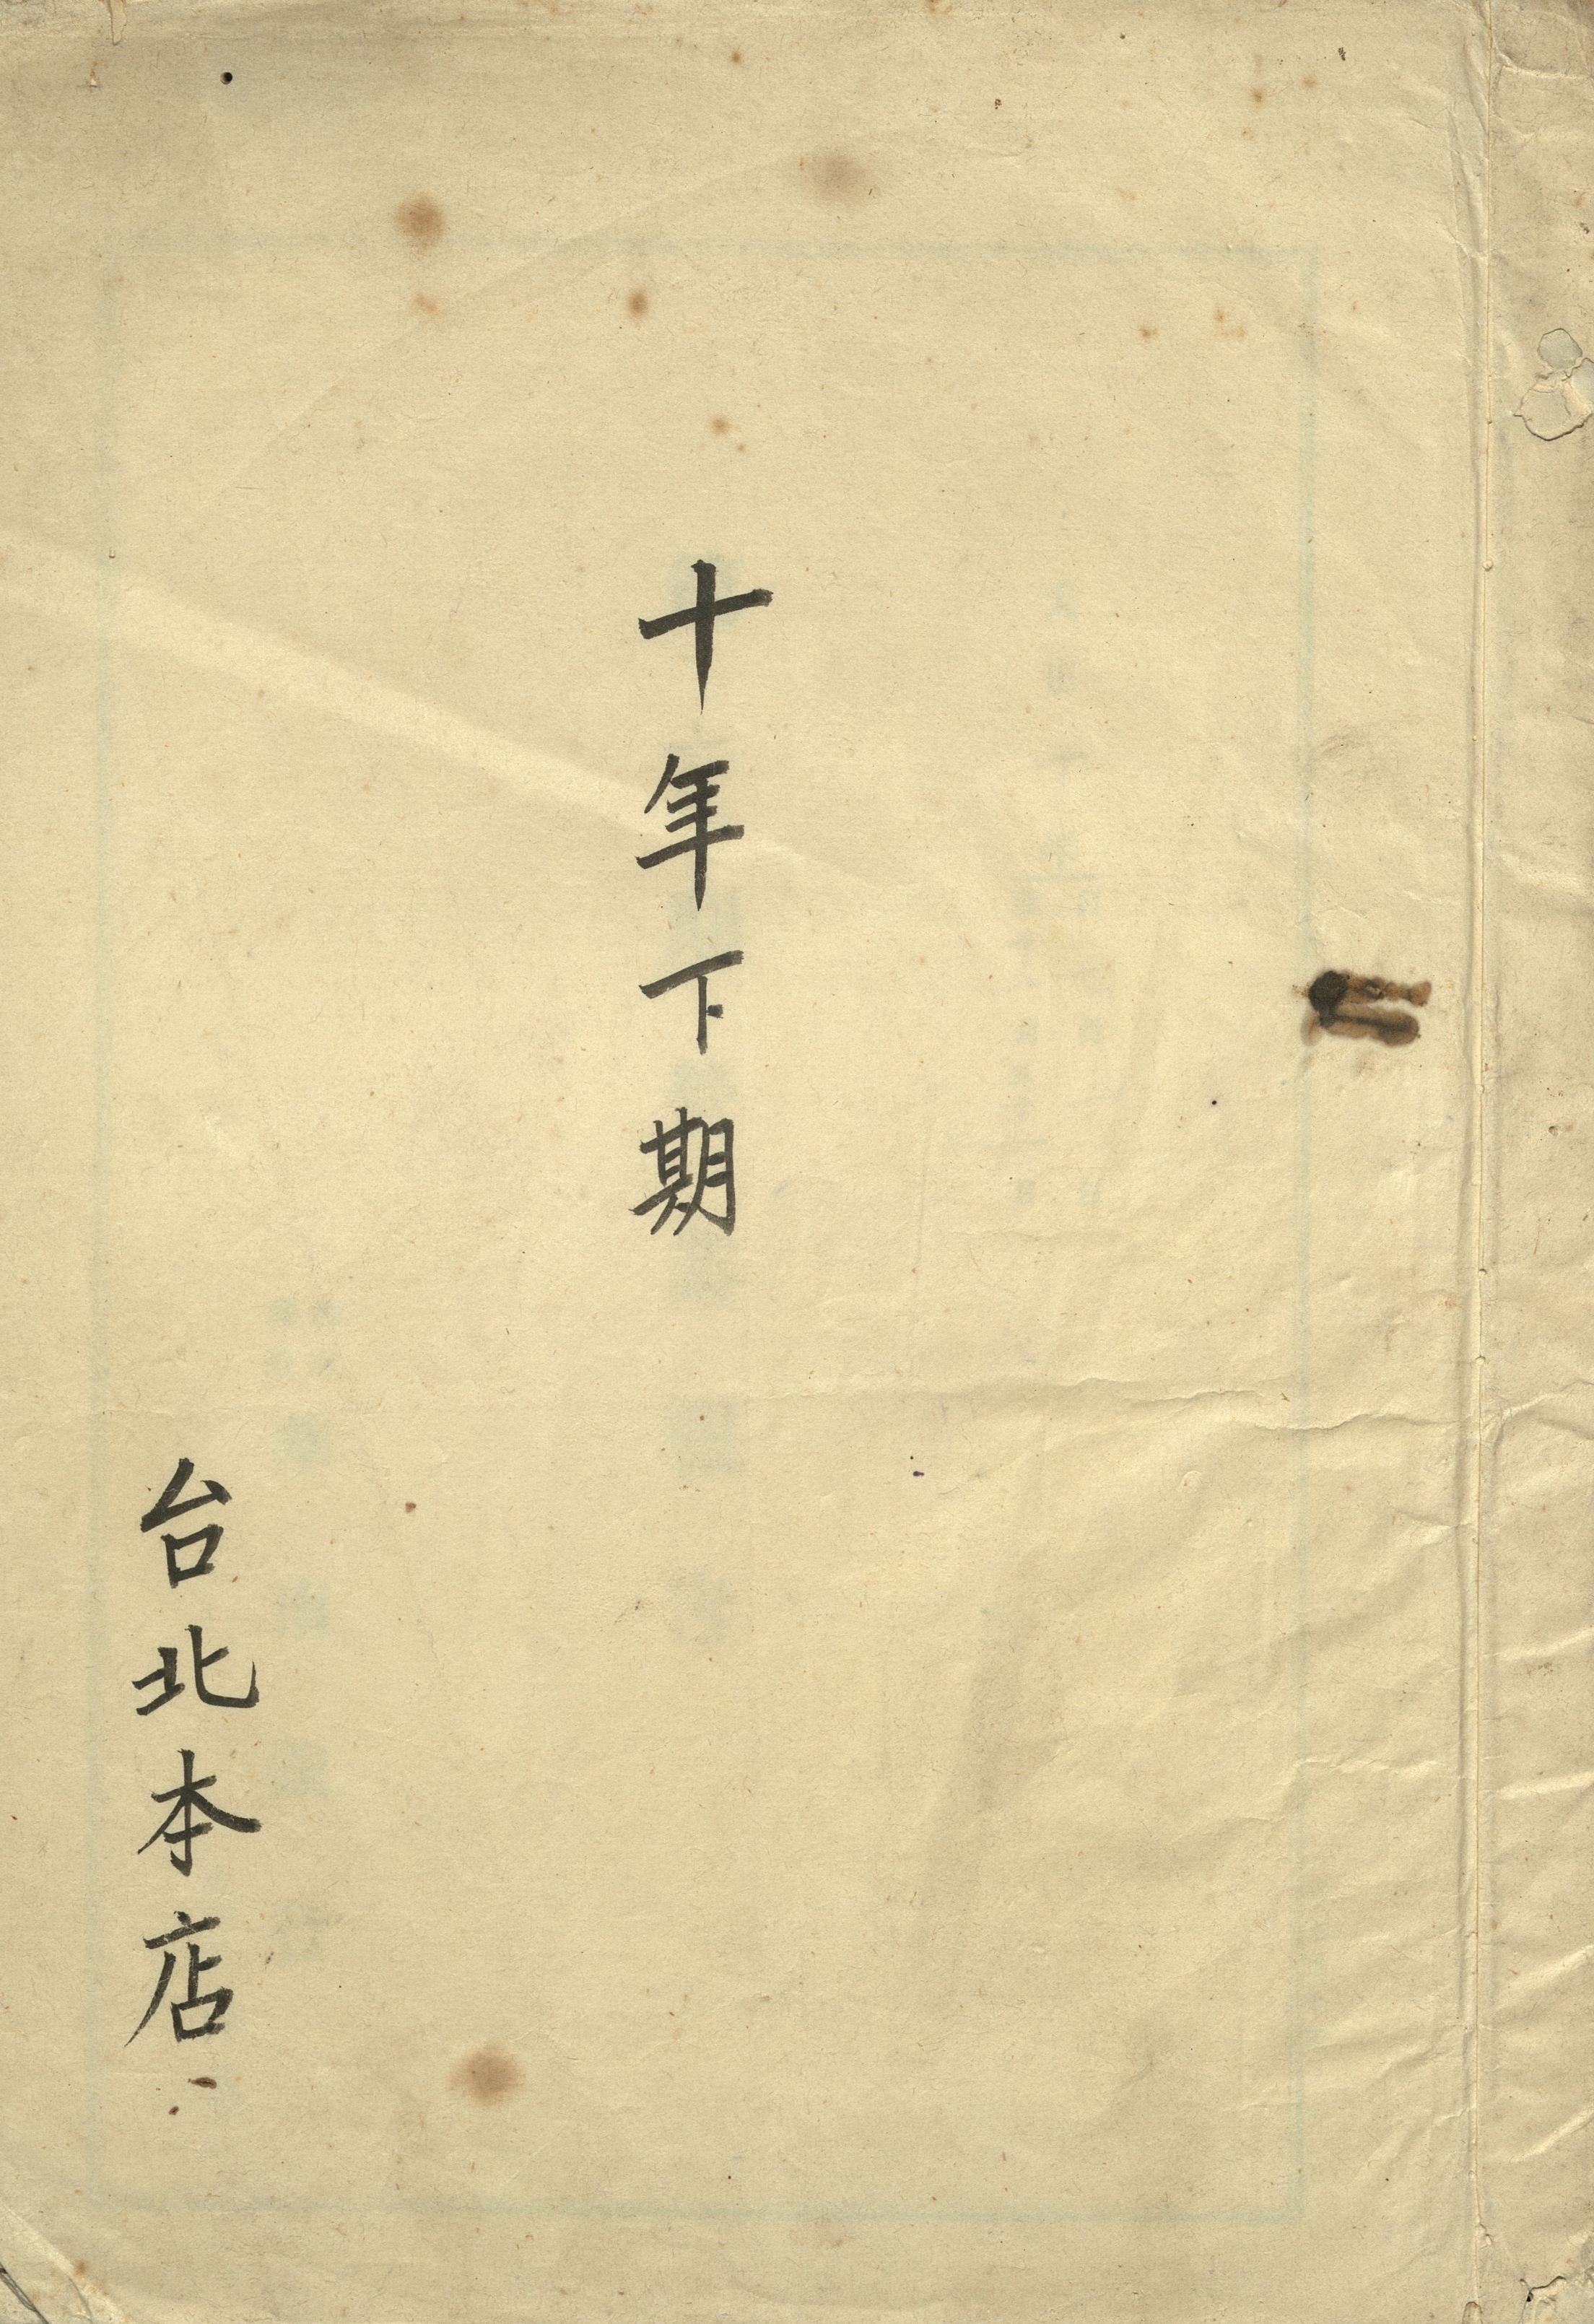 十年下期
台北本店